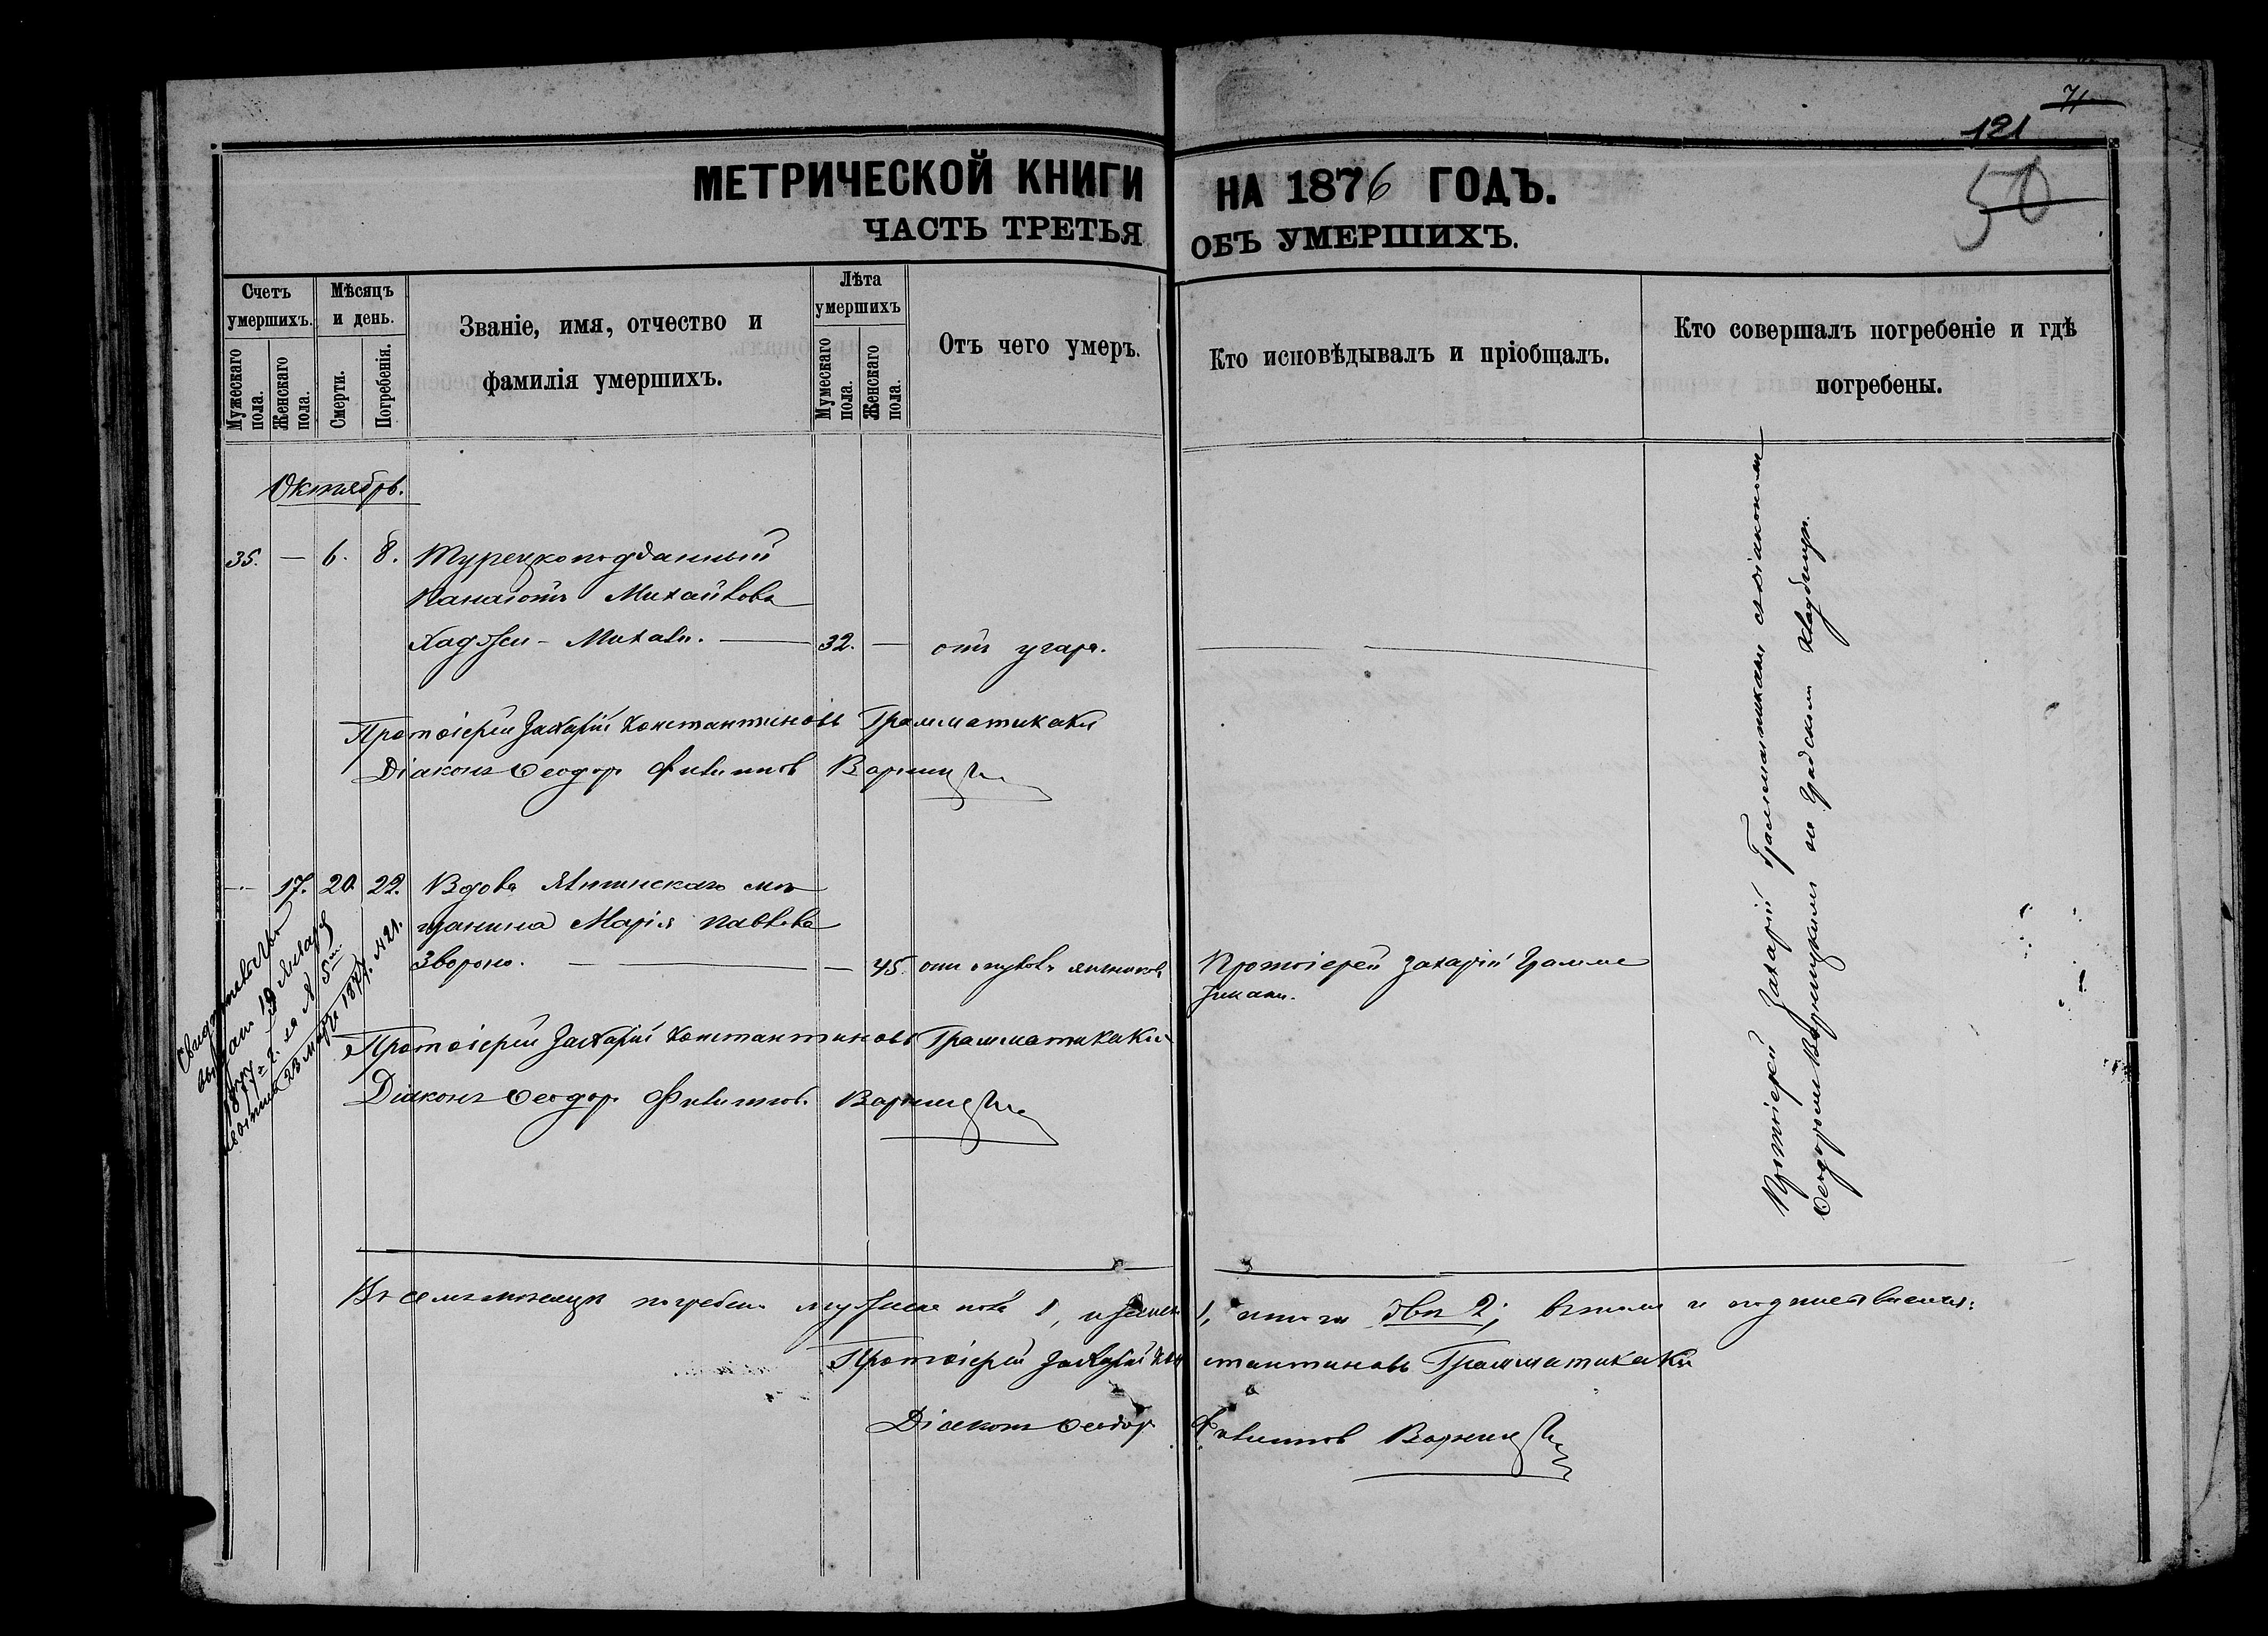 71
121
50
МЕТРИЧЕСКОЙ КНИГИ НА 1876 ГОДЪ.
ЧАСТЬ ТРЕТЬЯ ОБЪ УМЕРШИХЪ.
Счетъ умершихъ.
Мужескаго пола.
Женскаго пола.
Мѣсяцъ и день.
Смерти.
Погребенія.
Званіе, имя, отчество и
фамилія умершихъ.
Лѣта умершихъ
Мужескаго пола.
Женскаго пола.
Отъ чего умеръ.
Кто исповѣдывалъ и пріобщалъ.
Кто совершалъ погребеніе и гдѣ
погребены.
Октябрь.
35. — 6. 8. Турецкоподданный
Панаіотъ Михайлова
Хаджи - Михали. — 32. — отъ угара.
Протоіерей Захарій Константиновъ Грамматикаки
Діаконъ Ѳеодоръ Филиппов Варницкій
— 17. 20. 22. Вдова Ялтинскаго мѣ
щанина Марія Павлова
Звороно. — — 45. отъ опухоли Протоіерей Захарій Грамма
тикаки.
Протоіерей Захарій Константиновъ Грамматикаки
Діаконъ Ѳеодоръ Филиппов. Варницкій
Свидѣтельство
выдано 19 Января
1877 г. за № 5
23 Марта 1877. № 21.
Протоіерей Захарій Грамматикаки съ діакономъ
Ѳеодоромъ Варницкимъ на Градском кладбищѣ.
Въ семъ мѣсяцѣ погребено мужеска пола 1, и женск 1, итого два 2;
Протоіерей Захарій Константиновъ Грамматикаки
Діаконъ Ѳеодоръ Филиппов Варницкій